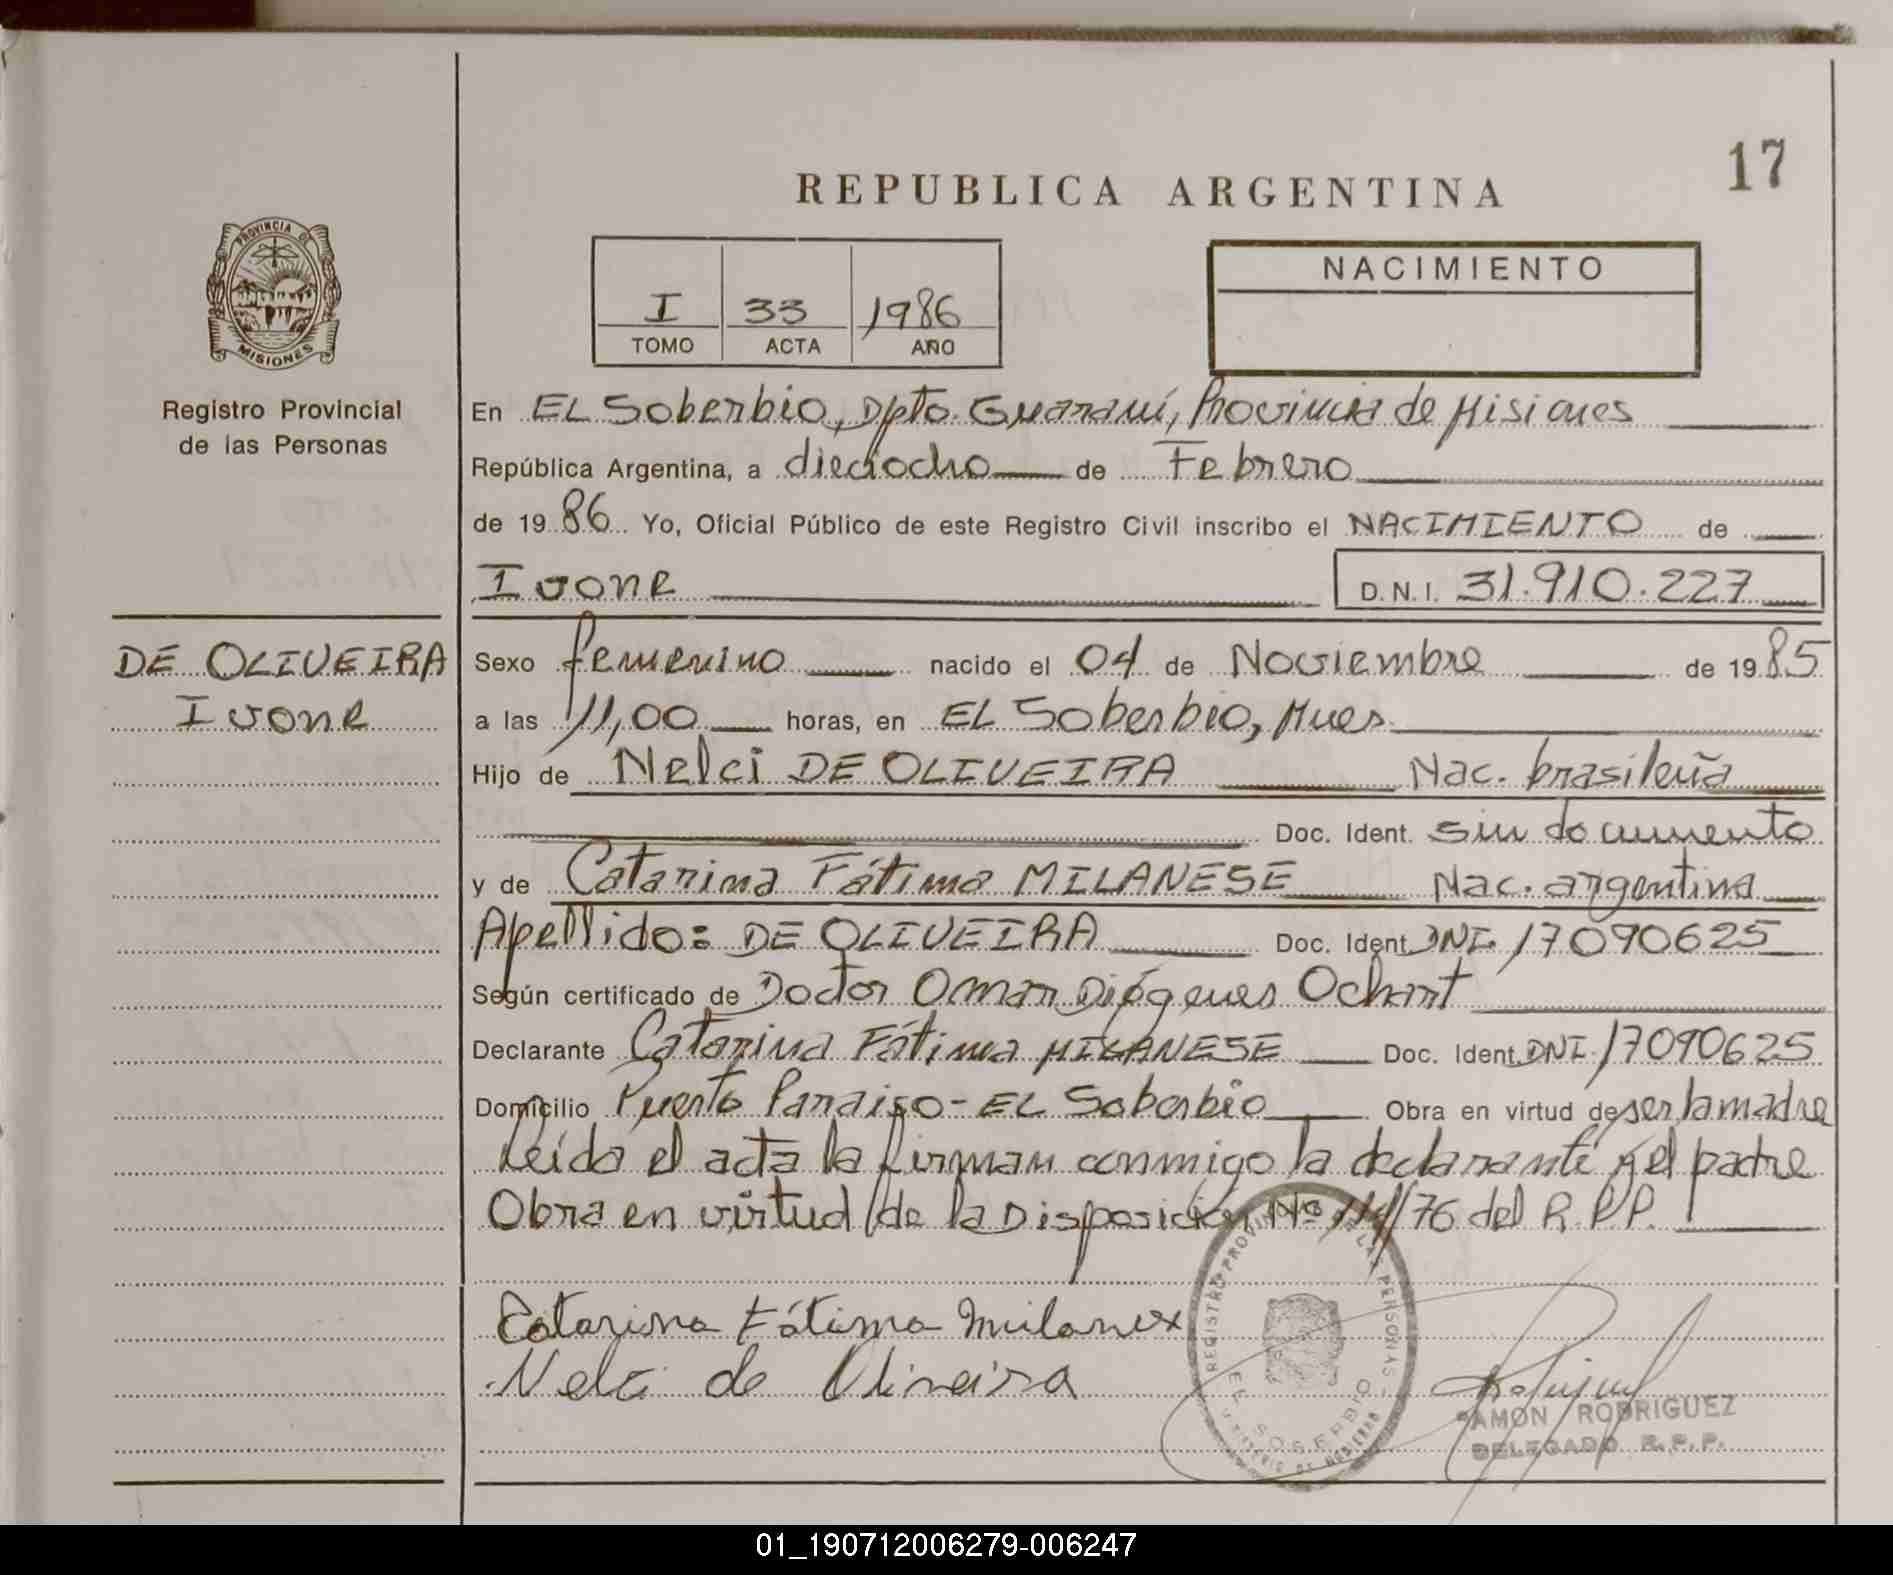 17
REPUBLICA ARGENTINA
PROVINCIA DE
MISIONES
Registro Provincial
de las Personas
I 33 1986
TOMO ACTA AÑO
NACIMIENTO
En EL Soberbio, Dpto. Guaraní, Provincia de Misiones
República Argentina, a dieciocho de Febrero
de 1986 Yo, Oficial Público de este Registro Civil inscribo el NACIMIENTO de
Ivone D.N.I. 31.910.227
DE OLIVEIRA
Ivone
Sexo femenino nacido el 04 de Noviembre de 1985
a las 11,00 horas, en EL Soberbio, Mnes
Hijo de Nelci DE OLIVEIRA Nac. brasileña
Doc. Ident. sin documento
y de Catarina Fátima MILANESE Nac. argentina
Apellido: DE OLIVEIRA Doc. Ident. DNI. 17090625
Según certificado de Doctor Omar Diógenes Ochart
Declarante Catarina Fátima MILANESE Doc. Ident. DNI. 17090625
Domicilio Puerto Paraiso - EL Soberbio Obra en virtud de ser la madre
Leída el acta la firman conmigo la declarante y el padre
Obra en virtud de la Disposición Nº 114/76 del R.P.P.
Catarina Fátima Milanex
Nelci de Oliveira
REGISTRO PROVINCIAL DE LAS PERSONAS
EL SOBERBIO
MINISTERIO DE GOBIERNO
RAMON RODRIGUEZ
DELEGADO R.P.P.
01_190712006279-006247